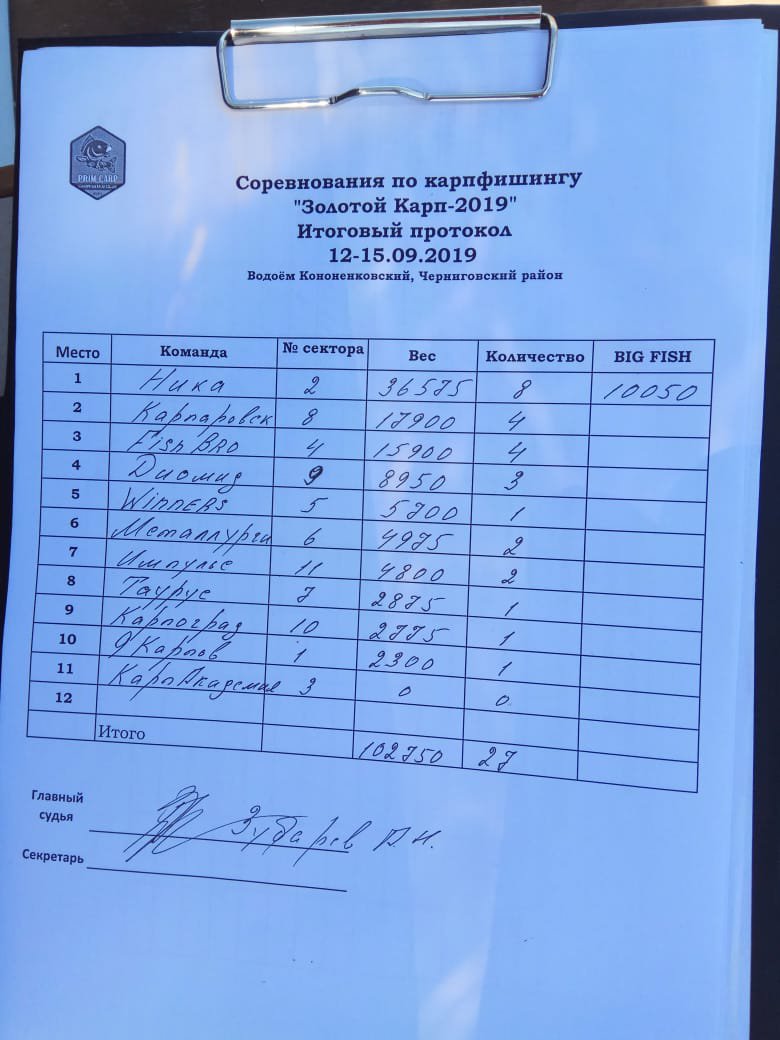 PRIM CARP
Соревнования по карпфишингу
"Золотой Карп-2019"
Итоговый протокол
12-15.09.2019
Водоём Кононенковский, Черниговский район
Место Команда № сектора Вес Количество BIG FISH
1 Ника 2 36575 8 10050
2 Карпаровск 8 17900 4
3 Fish BRO 4 15900 4
4 Диомид 9 8950 3
5 WINNERS 5 5700 1
6 Металлурги 6 4975 2
7 Импульс 11 4800 2
8 Таурус 7 2875 1
9 Карпоград 10 2775 1
10 9 Карпов 1 2300 1
11 КарпАкадемия 3 0 0
12
Итого 102750 27
Главный
судья Зубарев
Секретарь